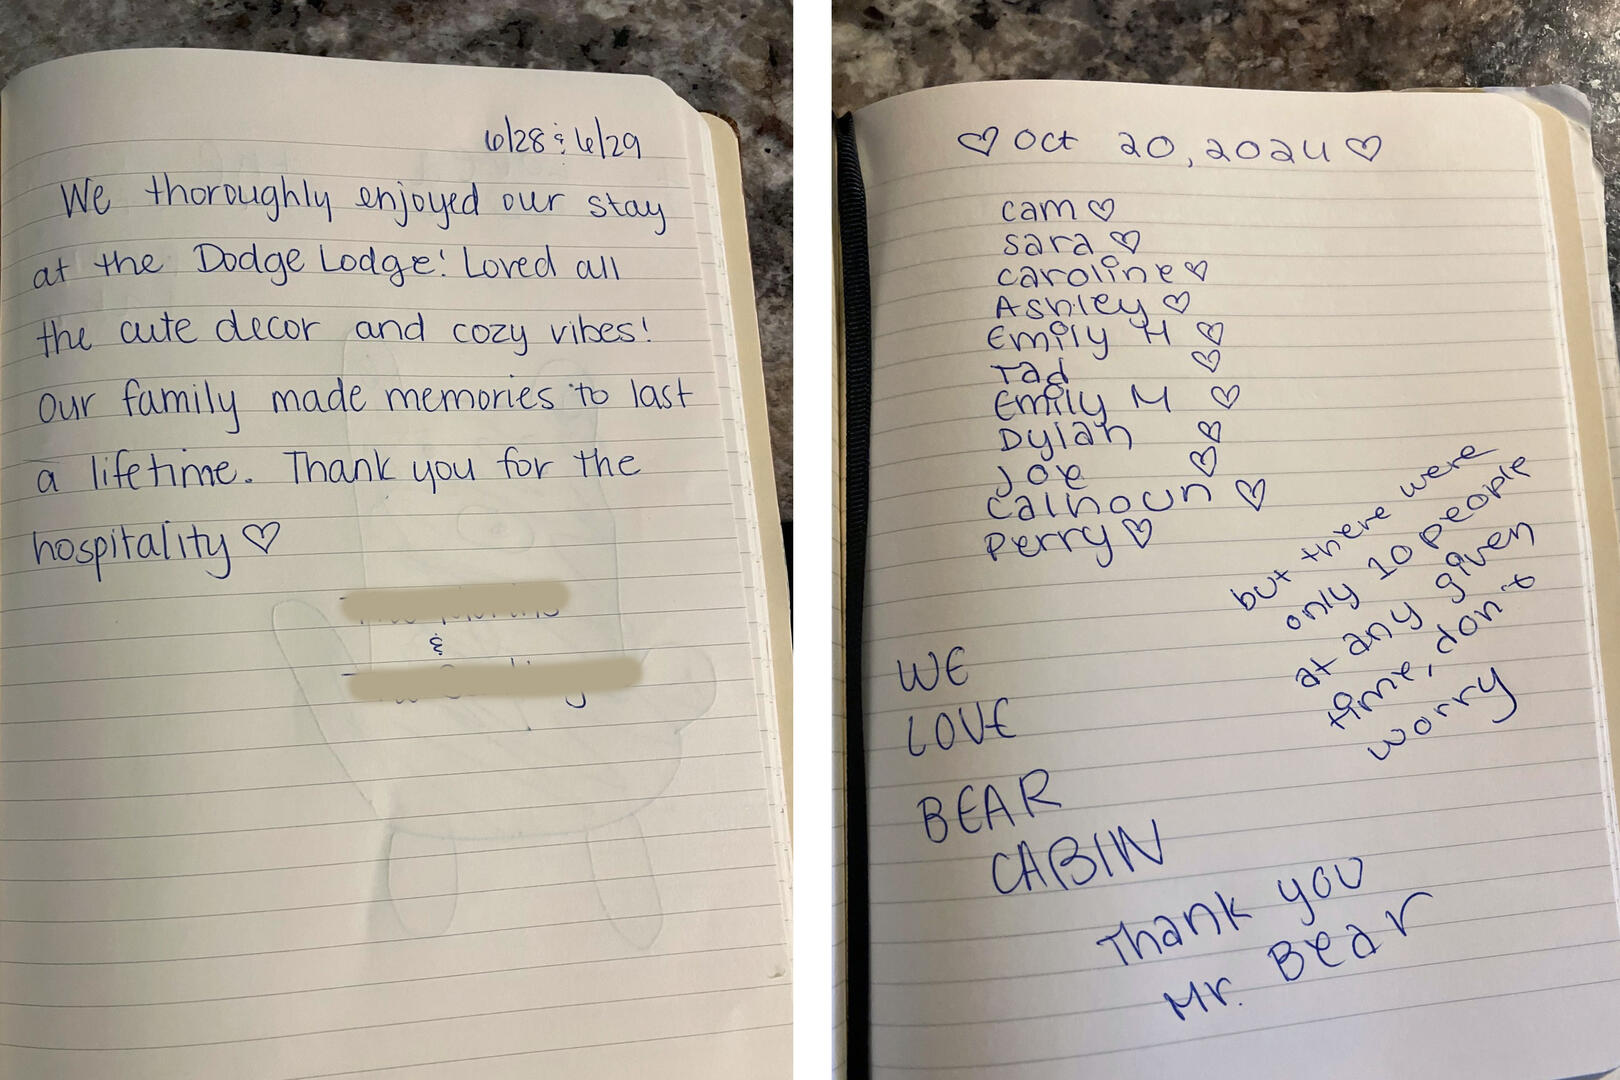 6/28 & 6/29
We thoroughly enjoyed our stay
at the Dodge Lodge! Loved all
the cute decor and cozy vibes!
Our family made memories to last
a lifetime. Thank you for the
hospitality ♡
&
♡ Oct 20, 2024 ♡
cam ♡
sara ♡
caroline ♡
Ashley ♡
Emily H ♡
Tad ♡
Emily M ♡
Dylan ♡
Joe ♡
Calhoun ♡
Perry ♡
but there were
only 10 people
at any given
time, don't
worry
WE
LOVE
BEAR
CABIN
Thank you
Mr. Bear